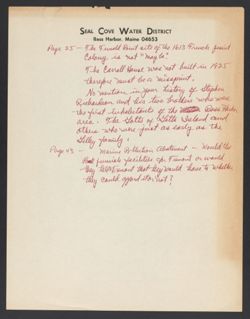 SEAL COVE WATER DISTRICT
Bass Harbor, Maine 04653
Page 25 - The Fernald Point site of the 1613 French Jesuit
Colony is not "maybe"
The Carroll House was not built in 1925
therefore must be a missprint.
No mention in your history of Stephen
Richardson and his two brothers who were
the first inhabitants of the Bass Harbor
area. The Gotts of Gotts Island and
others who were just as early as the
Tilley family.
Page 43 - Marine Pollution Abatement - Would the
facilities of Tremont or would
they that they would have to whether
they could afford it or not?